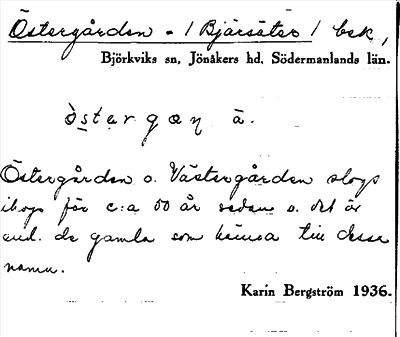 Östergården - / Bjärsäter / bsk,
Björkviks sn, Jönåkers hd, Södermanlands län.
östergaṇ ä.
Östergården o. Västergården slogs
ihop för c:a 50 år sedan o. det är
end. de gamla som känna till dessa
namn.
Karin Bergström 1936.